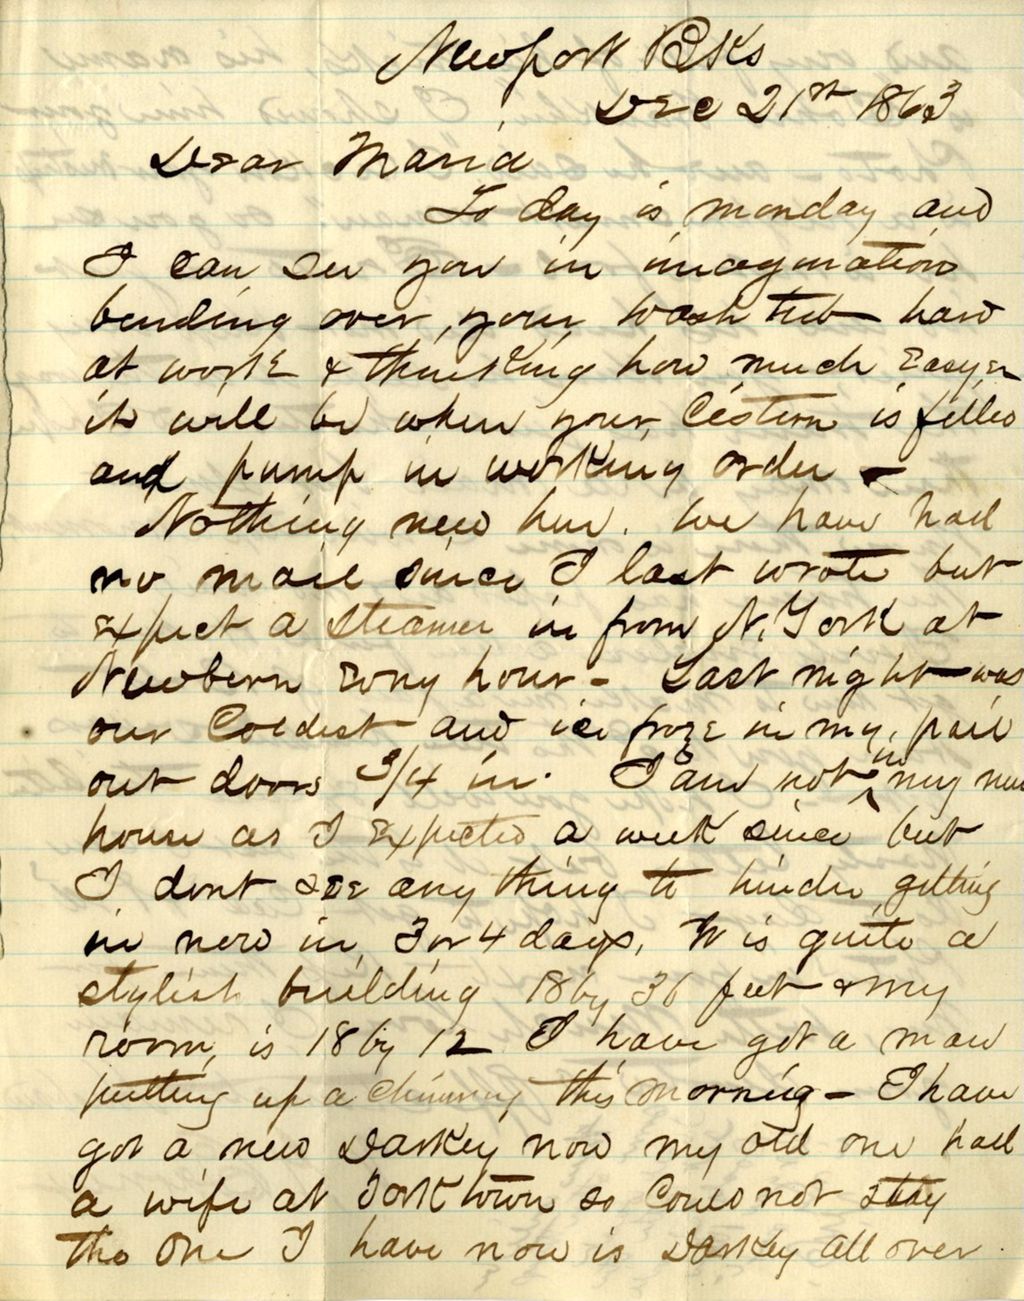 Newport Bks
Dec 21st 1863
Dear Maria
To day is monday and
I can see you in imagination
bending over your wash tub hard
at work & thinking how much easyer
it will be when your Cistern is filled
and pump in working order -
Nothing new here. We have had
no mail since I last wrote but
Expect a Steamer in from N. York at
Newbern evry hour - Last night was
our Coldest and ice froze in my pail
out doors 3/4 in. I am not in my new
house as I Expected a week since but
I dont see any thing to hinder getting
in now in 3 or 4 days, It is quite a
stylish building 18 by 36 feet & my
room is 18 by 12 I have got a man
putting up a chimney this morning - I have
got a new Darkey now my old one had
a wife at Yorktown so Could not stay
the One I have now is Darkey all over